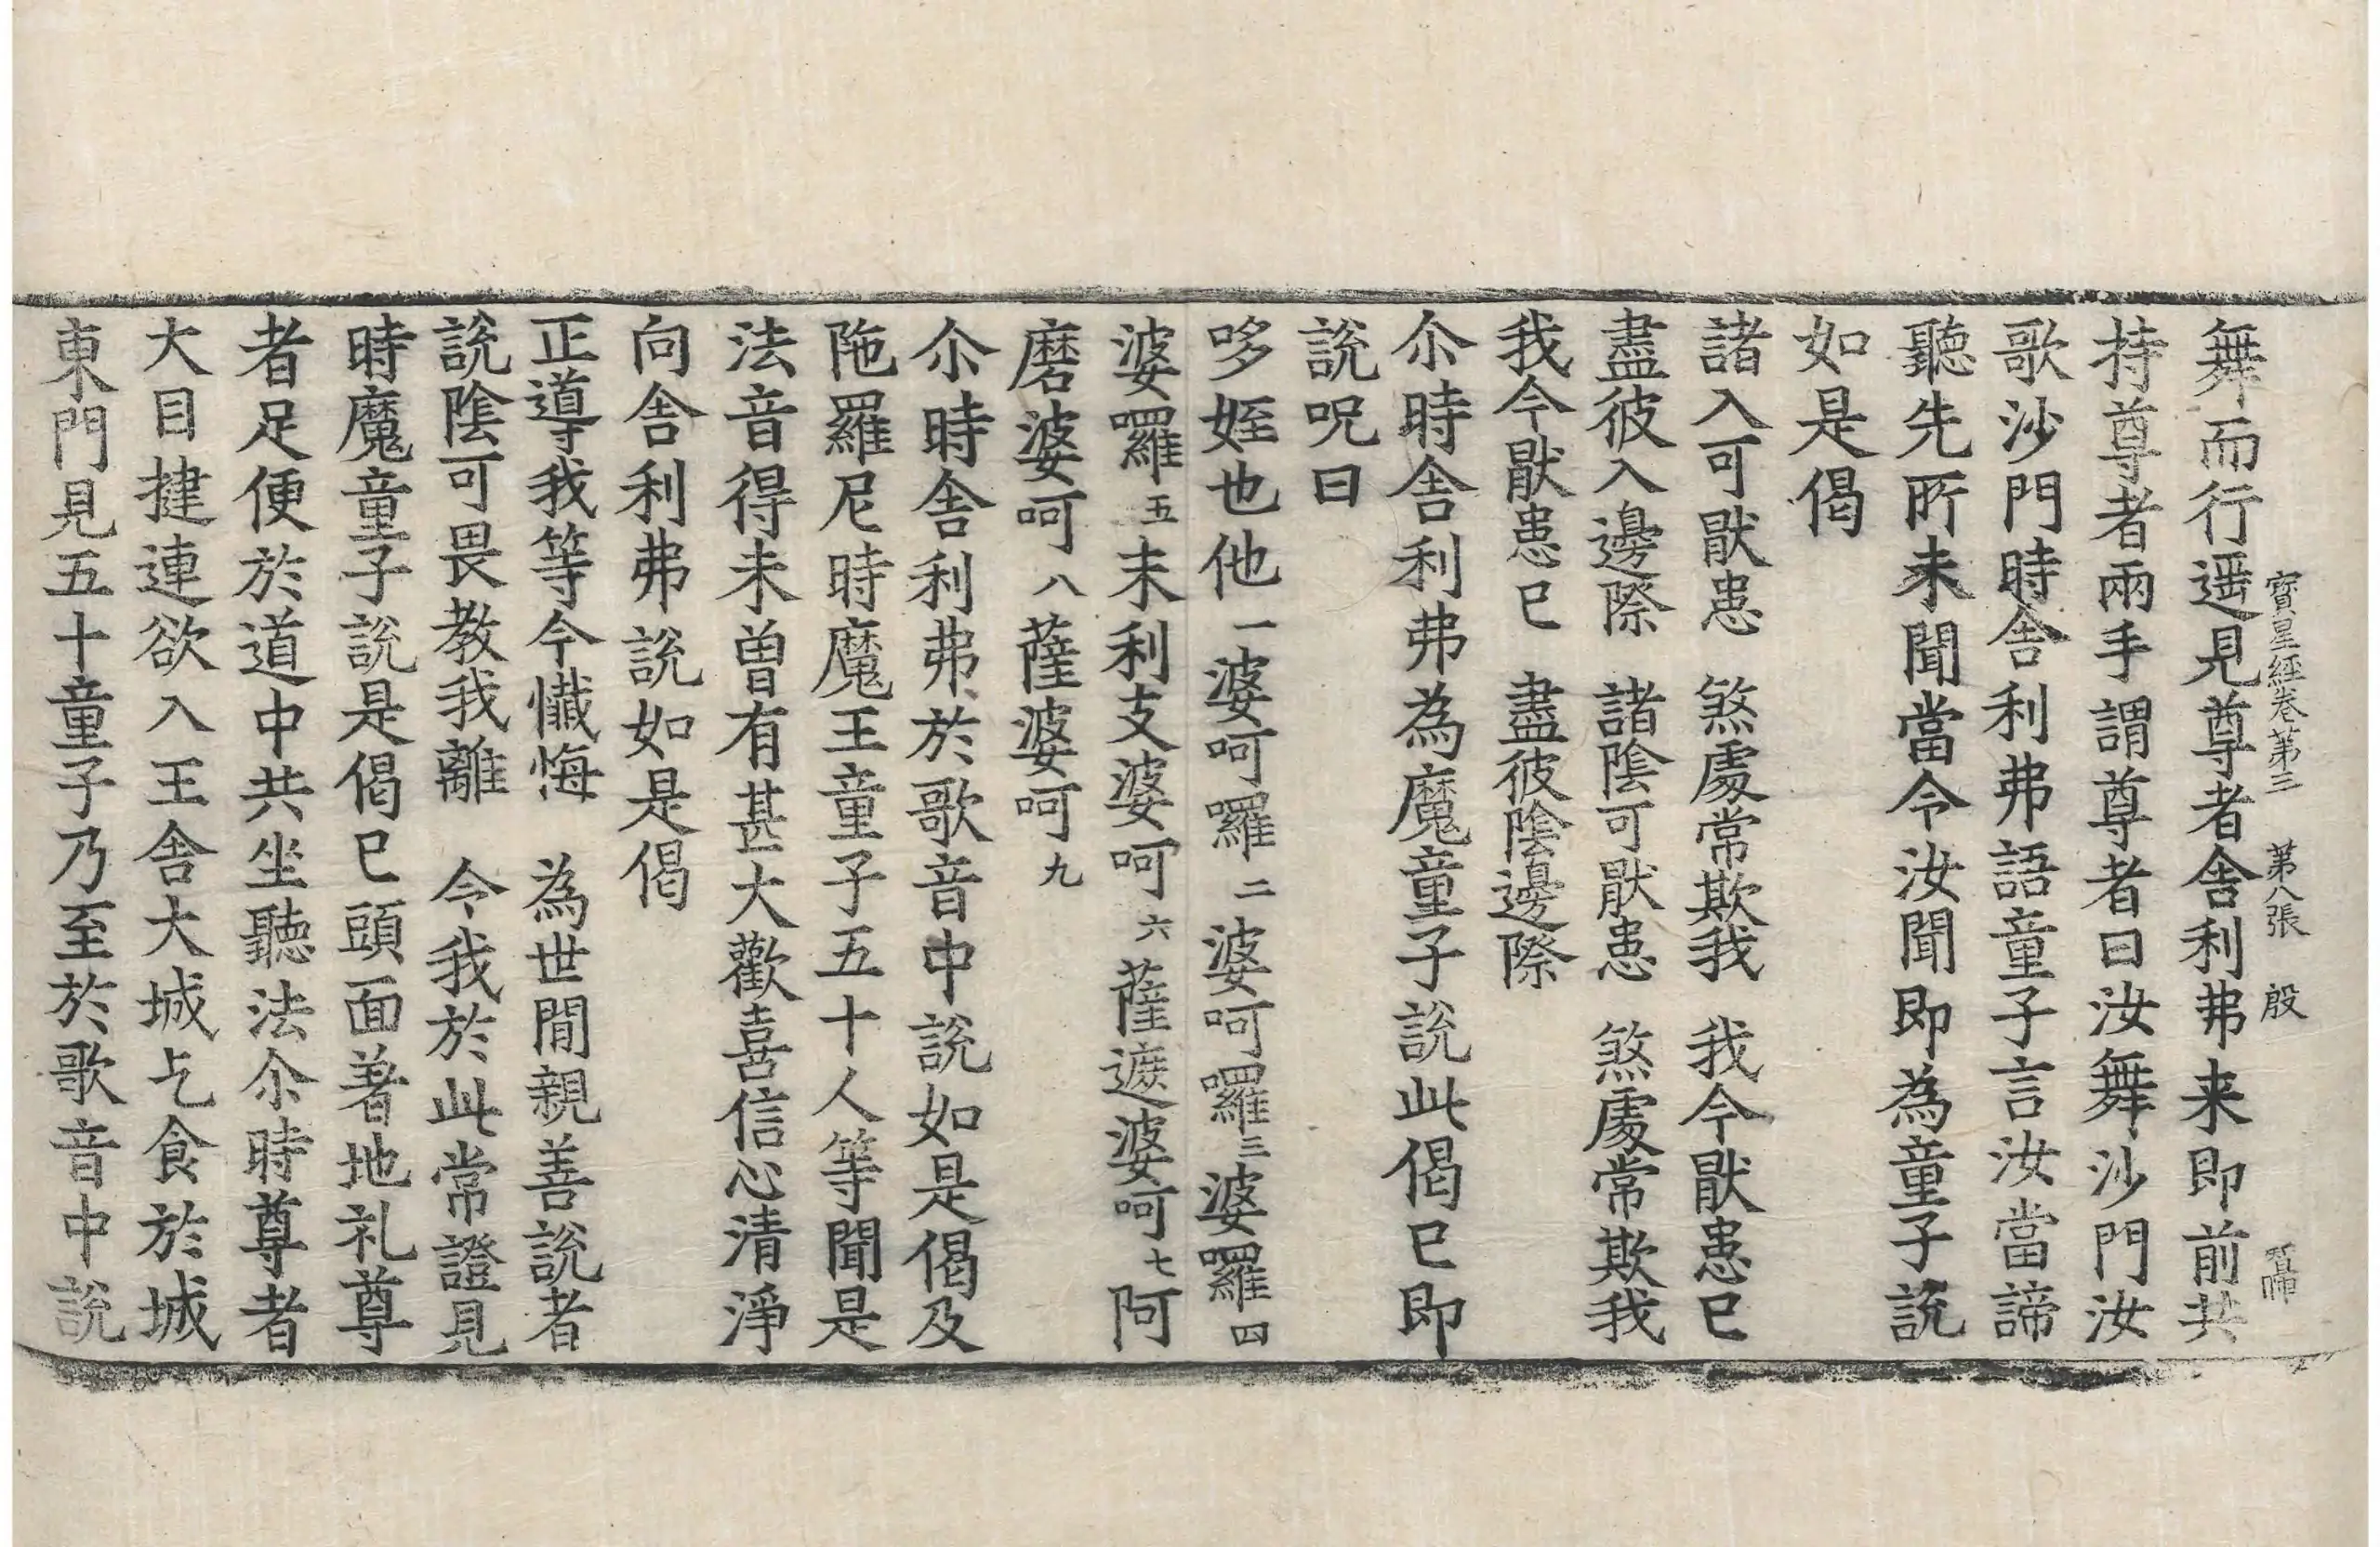 寳星經卷第三 第八張 殷
舞而行遥見尊者舎利弗来即前共
持尊者兩手謂尊者曰汝舞沙門汝
歌沙門時舎利弗語童子言汝當諦
聽先所未聞當令汝聞即為童子説
如是偈
諸入可猒患 煞處常欺我 我今猒患已
盡彼入邊際 諸隂可猒患 煞處常欺我
我今猒患已 盡彼隂邊際
尒時舎利弗為魔童子説此偈已即
説呪曰
哆姪也他一婆呵囉二婆呵囉三婆囉四
婆囉五末利支婆呵六薩遮婆呵七阿
磨婆呵八薩婆呵九
尒時舎利弗於歌音中説如是偈及
陁羅尼時魔王童子五十人等聞是
法音得未曽有甚大歡喜信心清淨
向舎利弗説如是偈
正導我等今懺悔 為世間親善説者
説隂可畏教我離 今我於此常證見
時魔童子説是偈已頭面著地礼尊
者足便於道中共坐聽法尒時尊者
大目揵連欲入王舎大城乞食於城
東門見五十童子乃至於歌音中説